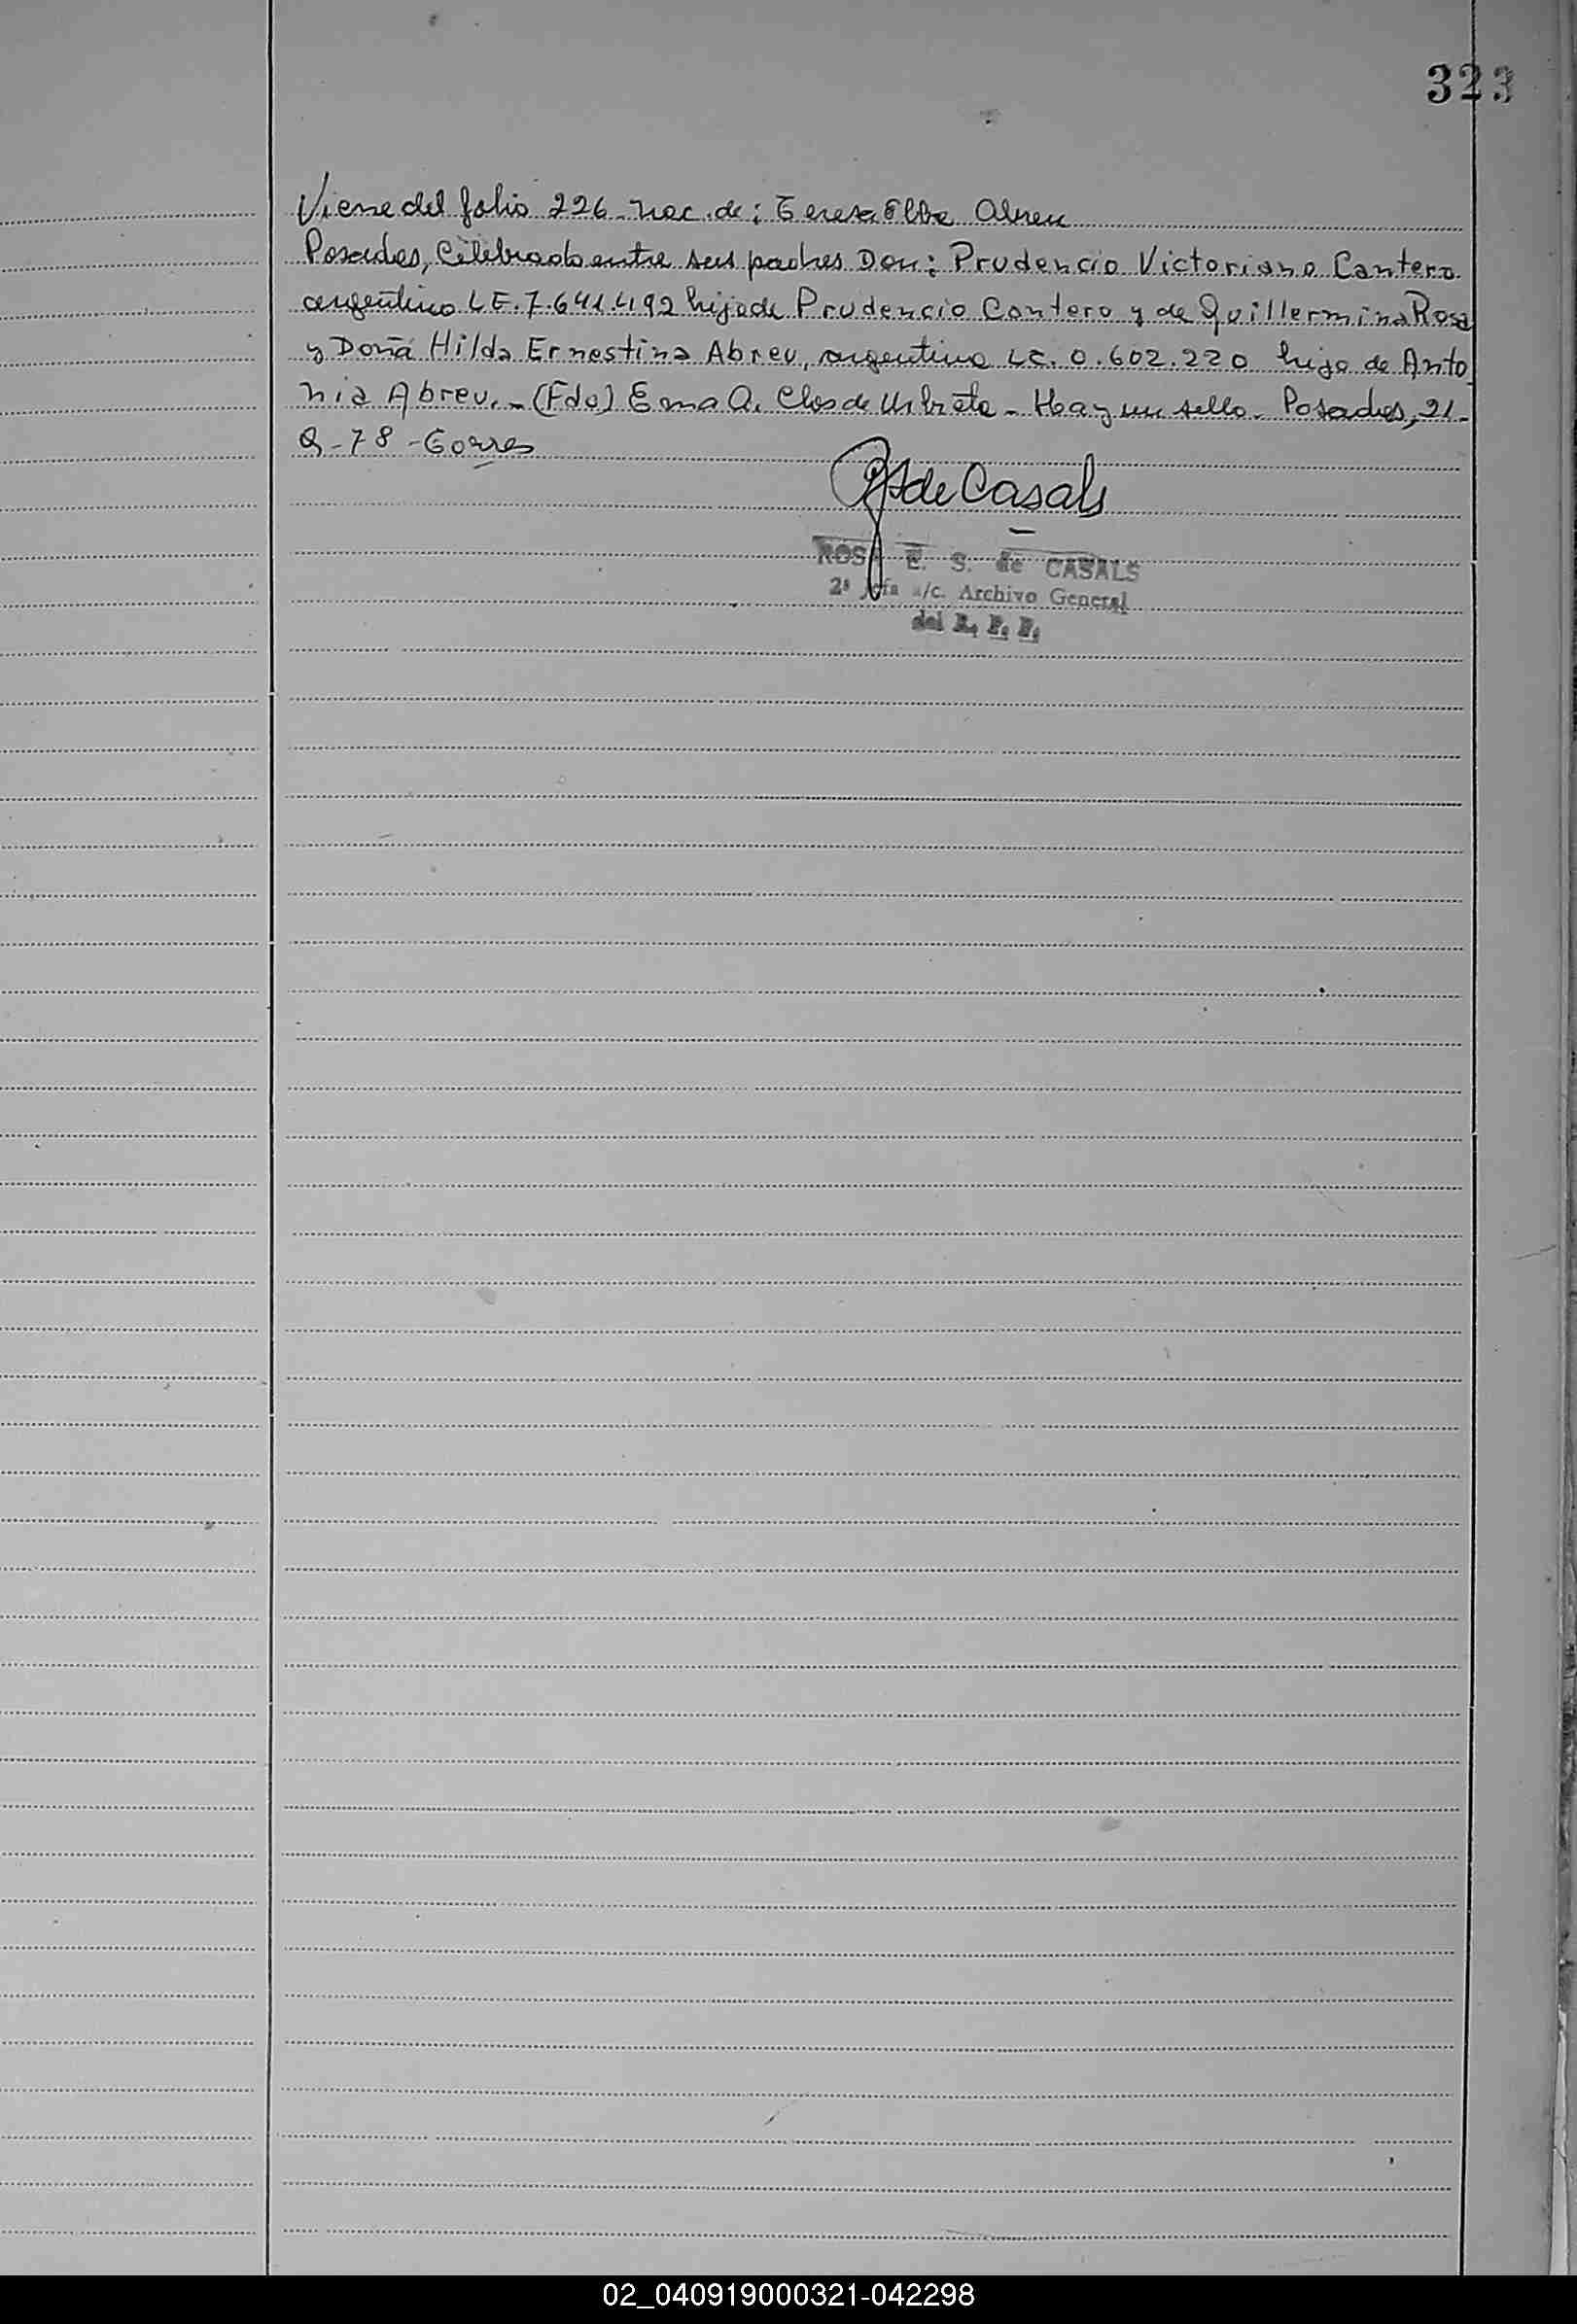 323
Viene del folio 226 - Nac. de: Teresa Elba Abreu
Posadas, Celebrado entre sus padres Don: Prudencio Victoriano Cantero
argentino LE. 7.641.492 hijo de Prudencio Cantero y de Guillermina Rosa
y Doña Hilda Ernestina Abreu, argentina LC. 0.602.220 hija de Anto
nia Abreu. - (Fdo) Ema A. Clos de - Hay un sello - Posadas, 21-
-78 - Torres
de Casals
ROSA E. S. de CASALS
2ª Jefa a/c. Archivo General
del R. P. P.
02_040919000321-042298